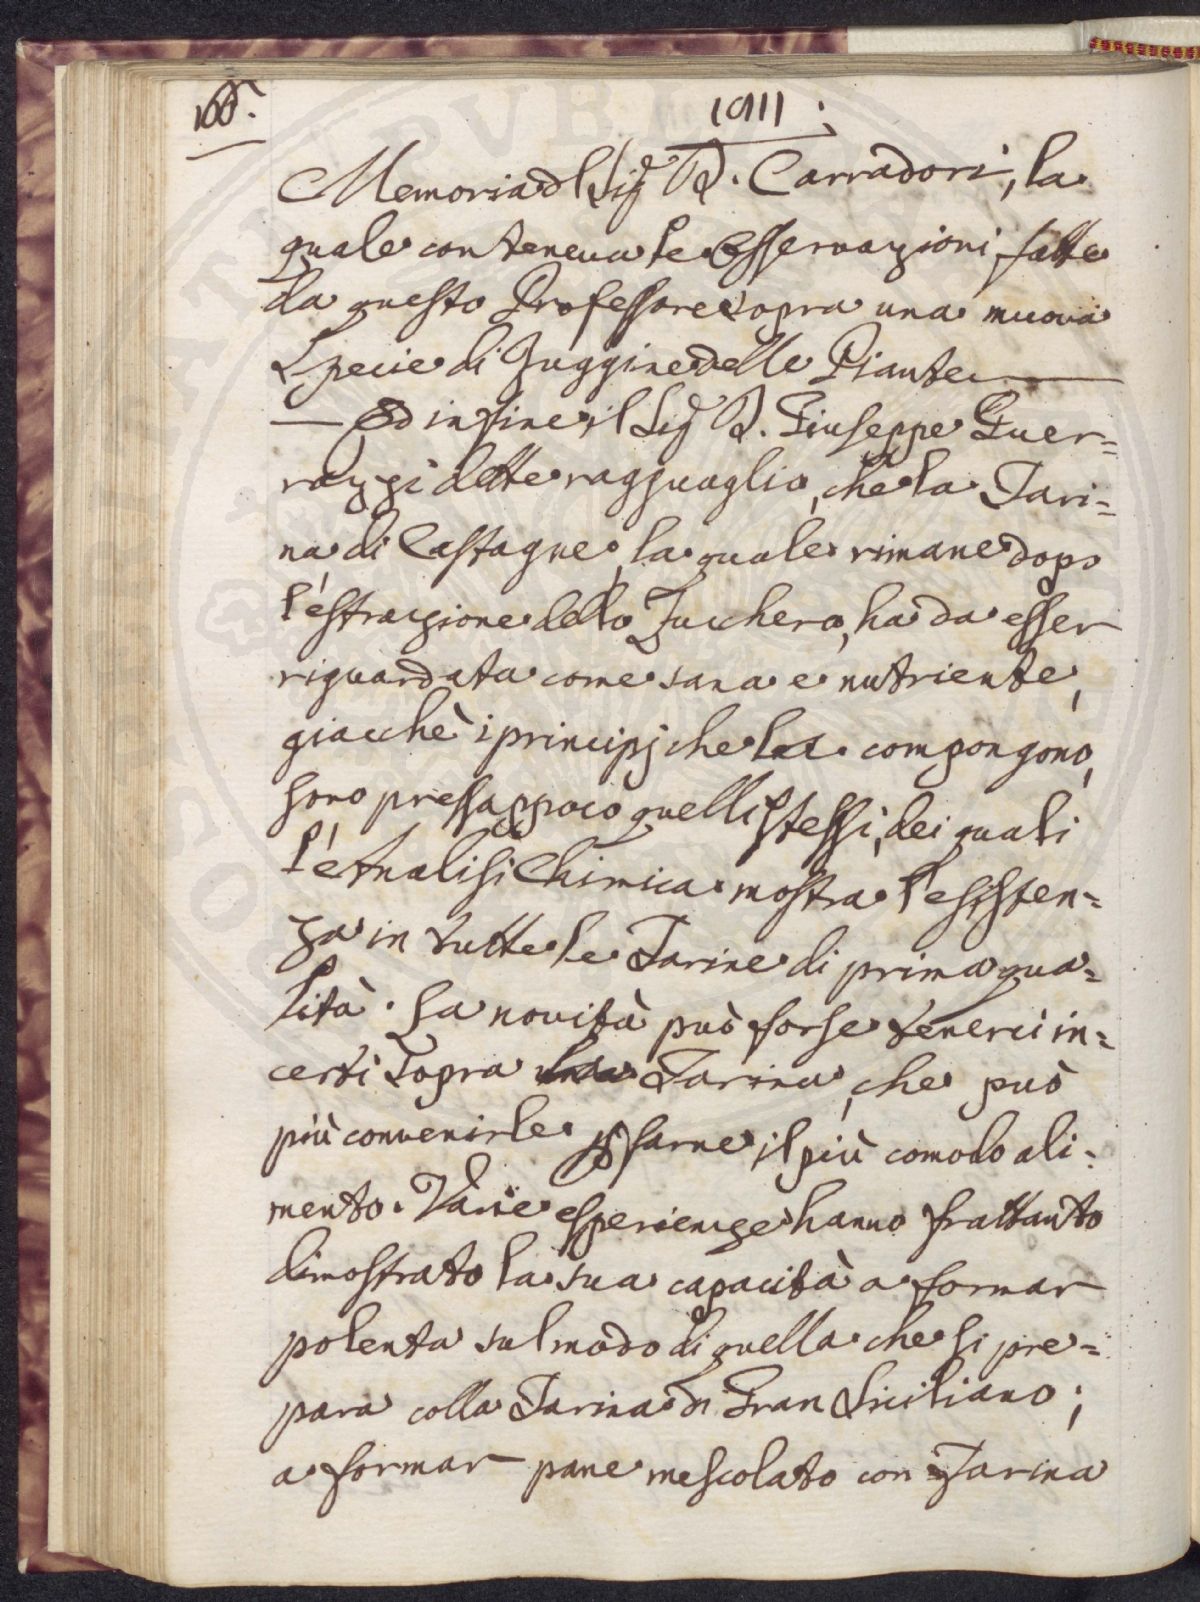 166.
1811.
Memoria del Sig.r D. Carradori, la
quale conteneva le Osservazioni fatte
da questo Professore sopra una nuova
Specie di Ruggine delle Piante
— Ed infine il Sig.r D. Giuseppe Guer=
razzi dette ragguaglio, che la Fari=
na di Castagne, la quale rimane dopo
l'estrazione dello Zucchero, ha da esser
riguardata come sana e nutriente,
giacchè i principj che la compongono,
sono pressappoco quelli stessi, dei quali
l'Analisi Chimica mostra l'esisten=
za in tutte le Farine di prima qua=
lità. La novità può forse tenerci in=
certi sopra la Farina, che può
più convenirle p farne il più comodo ali=
mento. Varie esperienze hanno frattanto
dimostrato la sua capacità a formar
polenta sul modo di quella che si pre=
para colla Farina di Gran Siciliano;
a formar pane mescolato con Farina